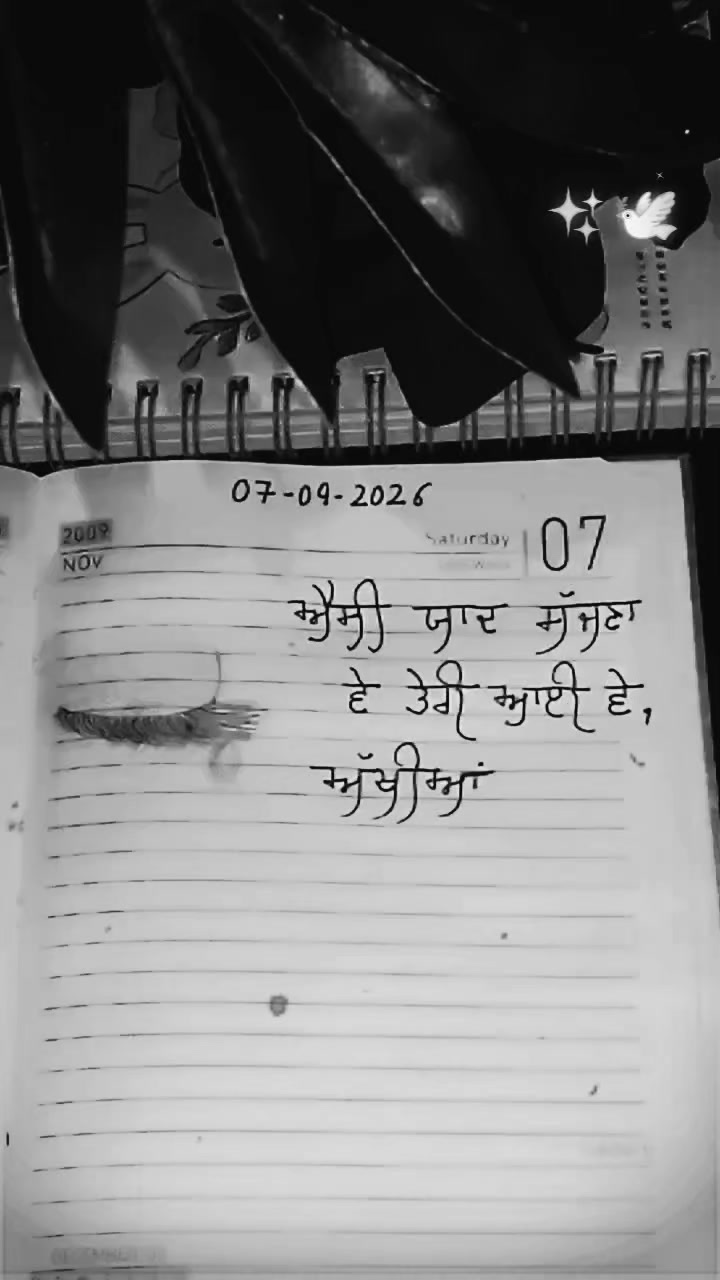 07-09-2026
2009
NOV
Saturday
07
ਐਸੀ ਯਾਦ ਸੱਜਣਾ
ਵੇ ਤੇਰੀ ਆਈ ਵੇ,
ਅੱਖੀਆਂ